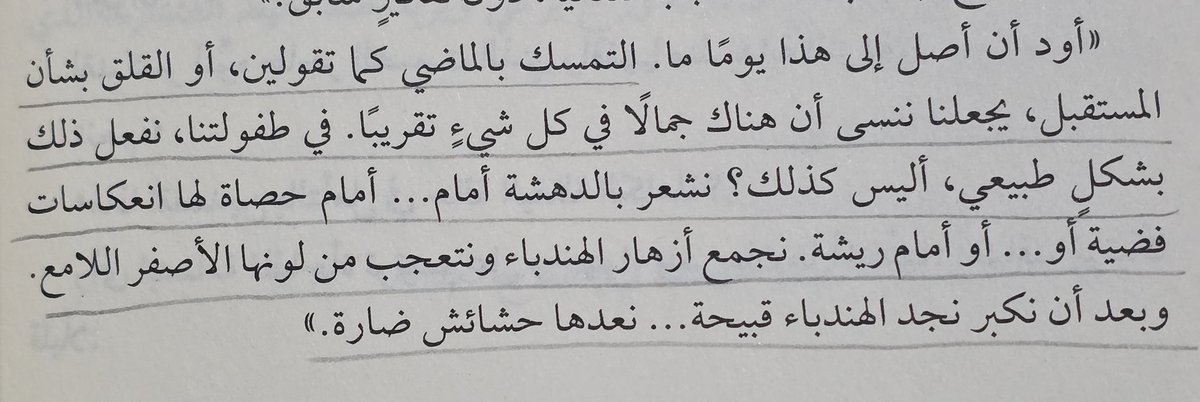 «أود أن أصل إلى هذا يومًا ما. التمسك بالماضي كما تقولين، أو القلق بشأن
المستقبل، يجعلنا ننسى أن هناك جمالًا في كل شيءٍ تقريبًا. في طفولتنا، نفعل ذلك
بشكلٍ طبيعي، أليس كذلك؟ نشعر بالدهشة أمام... أمام حصاة لها انعكاسات
فضية أو... أو أمام ريشة. نجمع أزهار الهندباء ونتعجب من لونها الأصفر اللامع.
وبعد أن نكبر نجد الهندباء قبيحة... نعدها حشائش ضارة.»